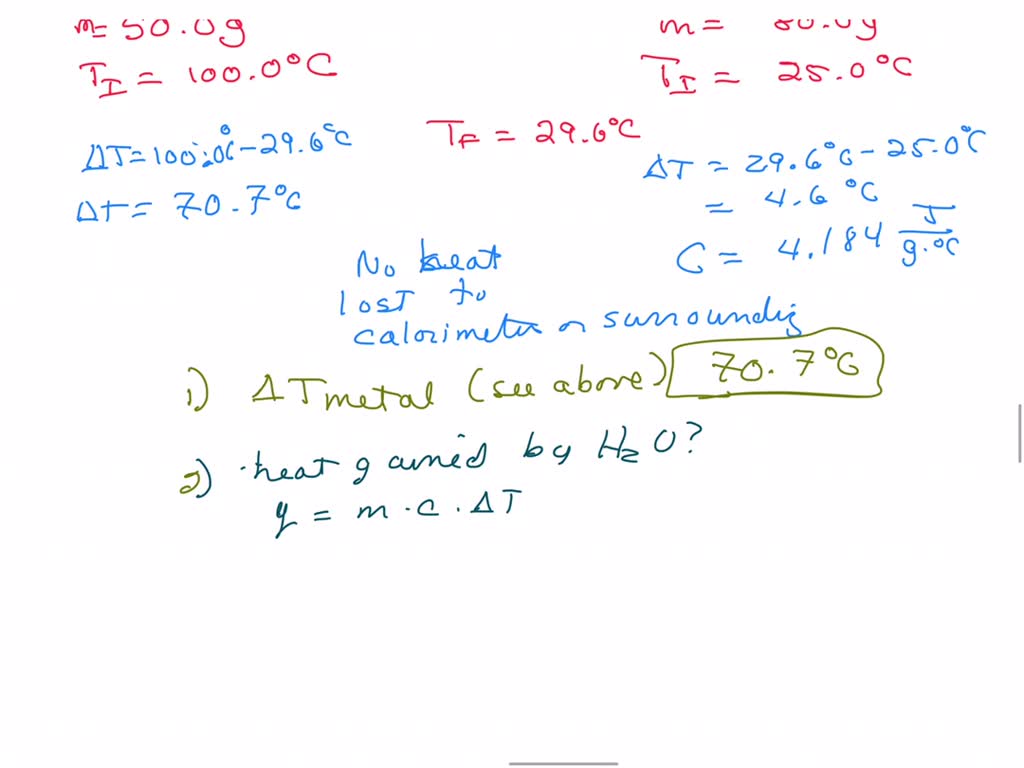 m= 50.0g
m = 80.0g
T_I = 100.0°C
T_I = 25.0°C
T_F = 29.6°C
ΔT=100.0°C-29.6°C
ΔT = 29.6°C-25.0°C
ΔT= 70.7°C
= 4.6 °C
C = 4.184 J/g.°C
No heat
lost to
calorimeter or surroundig
1) ΔTmetal (see above) 70.7°C
2) heat gained by H₂O?
q = m.c.ΔT